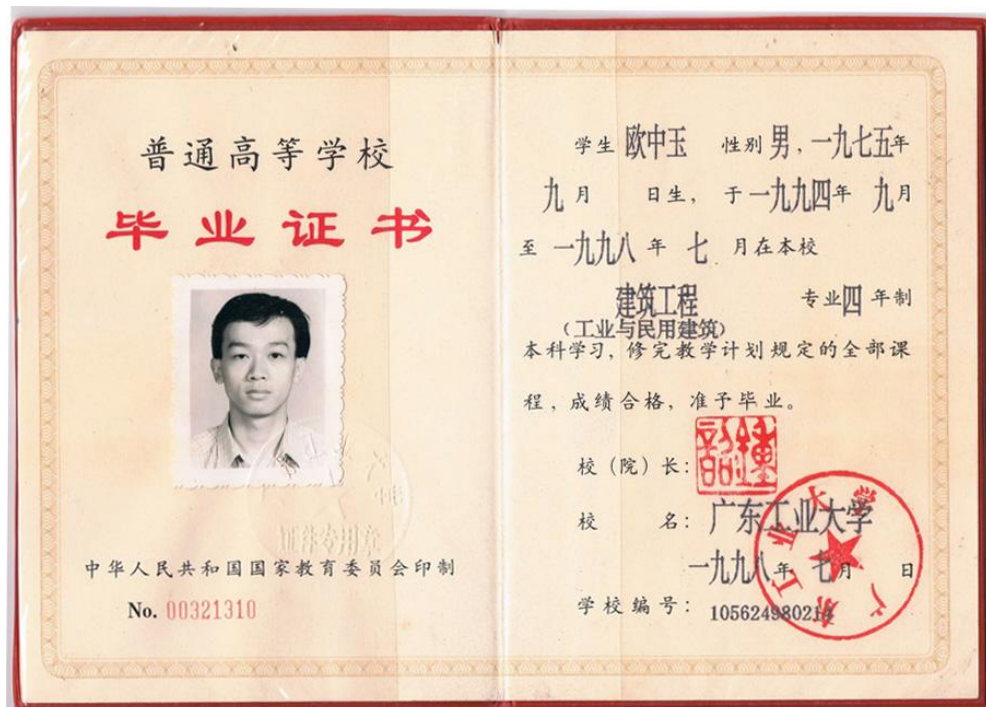 普通高等学校
毕业证书
证件专用章
中华人民共和国国家教育委员会印制
No. 00321310
学生 欧中玉 性别 男，一九七五年
九月 日生，于一九九四年 九月
至 一九九八 年 七 月在本校
建筑工程 专业四 年制
（工业与民用建筑）
本科学习，修完教学计划规定的全部课
程，成绩合格，准予毕业。
校（院）长：
校 名：广东工业大学
一九九八年 七月 日
学校编号：105624980214
广东工业大学